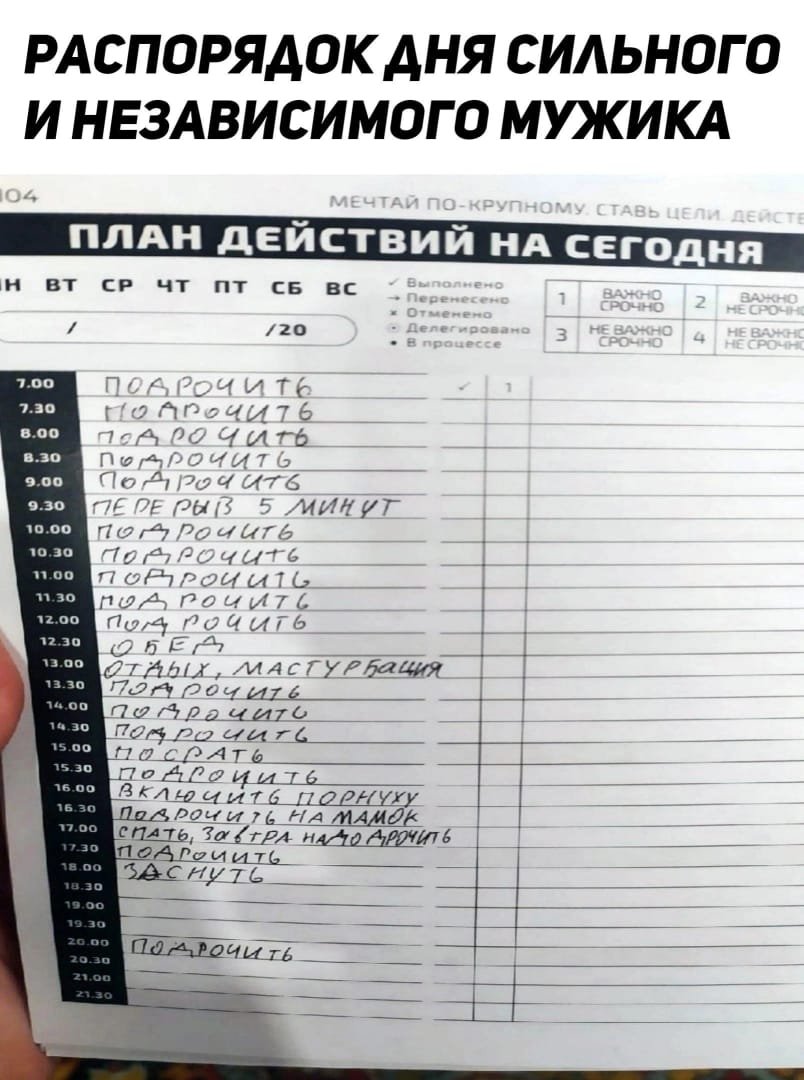 РАСПОРЯДОК ДНЯ СИЛЬНОГО
И НЕЗАВИСИМОГО МУЖИКА
104
МЕЧТАЙ ПО-КРУПНОМУ. СТАВЬ ЦЕЛИ. ДЕЙСТВ
ПЛАН ДЕЙСТВИЙ НА СЕГОДНЯ
Н ВТ СР ЧТ ПТ СБ ВС
/ /20
✓ Выполнено
→ Перенесено
× Отменено
Делегировано
• В процессе
1 ВАЖНО СРОЧНО 2 ВАЖНО НЕ СРОЧНО
3 НЕ ВАЖНО СРОЧНО 4 НЕ ВАЖНО НЕ СРОЧНО
7.00 ПОДРОЧИТЬ ✓ 1
7.30 ПОДРОЧИТЬ
8.00 ПОДРОЧИТЬ
8.30 ПОДРОЧИТЬ
9.00 ПОДРОЧИТЬ
9.30 ПЕРЕРЫВ 5 МИНУТ
10.00 ПОДРОЧИТЬ
10.30 ПОДРОЧИТЬ
11.00 ПОДРОЧИТЬ
11.30 ПОДРОЧИТЬ
12.00 ПОДРОЧИТЬ
12.30 ОБЕД
13.00 ОТДЫХ, МАСТУРБация
13.30 ПОДРОЧИТЬ
14.00 ПОДРОЧИТЬ
14.30 ПОДРОЧИТЬ
15.00 ПОСРАТЬ
15.30 ПОДРОЧИТЬ
16.00 ВКЛЮЧИТЬ ПОРНУХУ
16.30 ПОДРОЧИТЬ НА МАМОК
17.00 СПАТЬ, ЗавТРА НАДО ДРОЧИТЬ
17.30 ПОДРОЧИТЬ
18.00 ЗАСНУТЬ
18.30
19.00
19.30
20.00 ПОДРОЧИТЬ
20.30
21.00
21.30